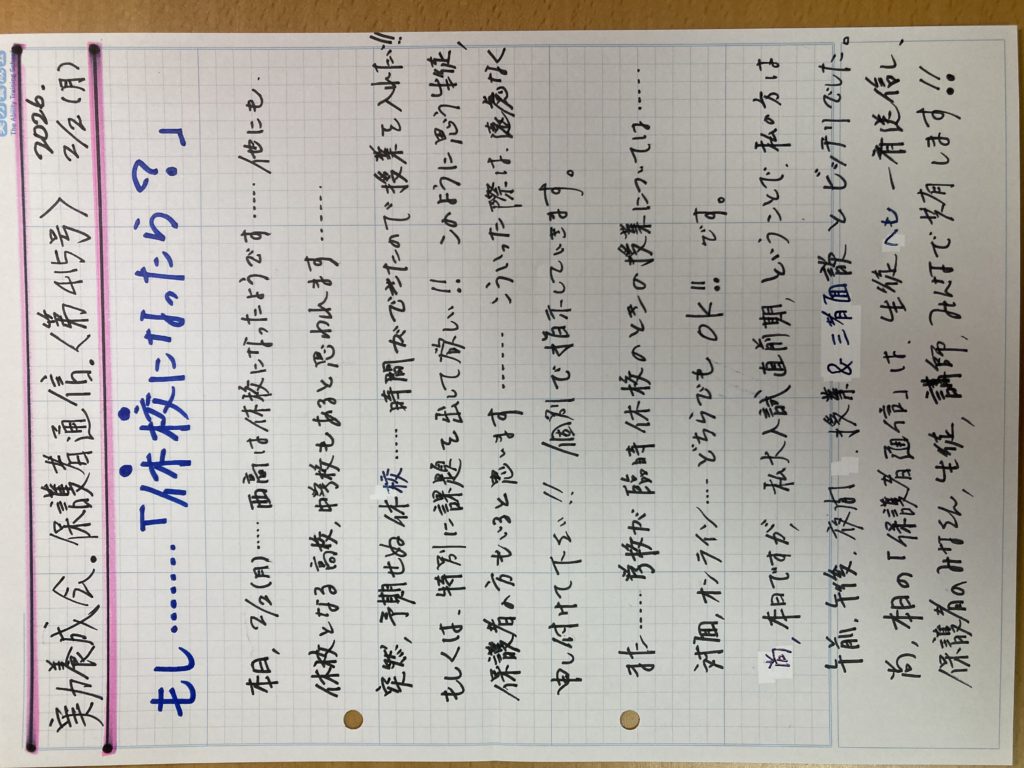 実力養成会.保護者通信.〈第415号〉 2026. 2/2(月)
もし……「休校になったら?」
本日, 2/2(月)…… 西高は休校になったようです…… 他にも.
休校となる高校, 中学校もあると思われます……
突然, 予期せぬ休校…… 時間ができたので授業を入れたい!!
もしくは、特別に課題を出して欲しい!! このように思う生徒,
保護者の方もいると思います…… こういった際は、遠慮なく
申し付けて下さい!! 個別で指示していきます。
また…… 学校が臨時休校のときの授業については……
対面, オンライン…… どちらでも, OK!! です。
尚, 本日ですが, 私大入試直前期, ということで、私の方は
午前. 午後. 夜間. 授業&三者面談とビッチリでした。
尚, 本日の「保護者通信」は. 生徒へも一斉送信し、
保護者のみなさん, 生徒, 講師, みんなで共有します!!